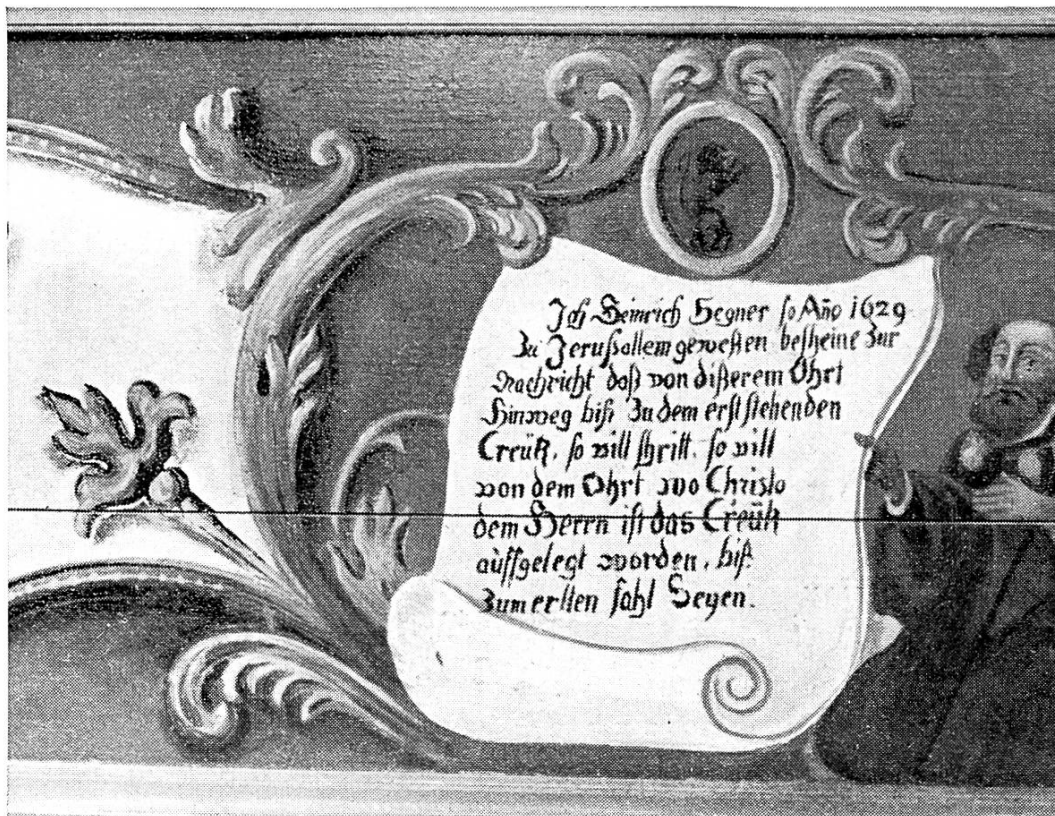 Ich Heinrich Hegner so Año 1629
Zu Jerussallem gewesten bescheine Zur
Nachricht daß von dißerem Ohrt
Hinweg biß Zu dem erst stehenden
Creütz, so vill schritt, so vill
von dem Ohrt wo Christo
dem Herrn ist das Creütz
aüffgelegt worden, biß
Zum ersten fahl Seyen.